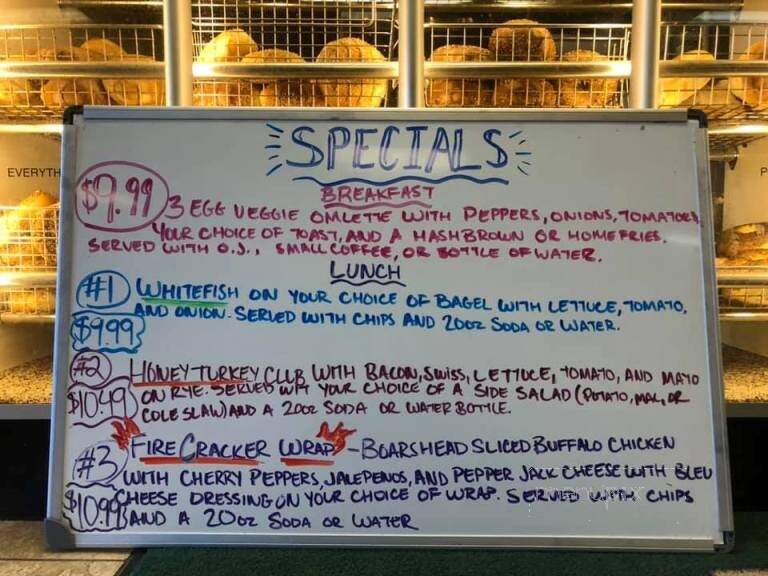 SPECIALS
EVERYTH
BREAKFAST
$9.99
3 EGG VEGGIE OMLETTE WITH PEPPERS, ONIONS, TOMATOES,
YOUR CHOICE OF TOAST, AND A HASHBROWN OR HOMEFRIES.
SERVED WITH O.J., SMALL COFFEE, OR BOTTLE OF WATER.
LUNCH
#1 WHITEFISH ON YOUR CHOICE OF BAGEL WITH LETTUCE, TOMATO,
$9.99 AND ONION. SERVED WITH CHIPS AND 20OZ SODA OR WATER.
#2 HONEY TURKEY CLUB WITH BACON, SWISS, LETTUCE, TOMATO, AND MAYO
$10.49 ON RYE. SERVED WIT YOUR CHOICE OF A SIDE SALAD (POTATO, MAC, OR
COLE SLAW) AND A 20OZ SODA OR WATER BOTTLE.
#3 FIRE CRACKER WRAP - BOARSHEAD SLICED BUFFALO CHICKEN
WITH CHERRY PEPPERS, JALEPENOS, AND PEPPER JACK CHEESE WITH BLEU
$10.99 CHEESE DRESSING ON YOUR CHOICE OF WRAP. SERVED WITH CHIPS
AND A 20OZ SODA OR WATER